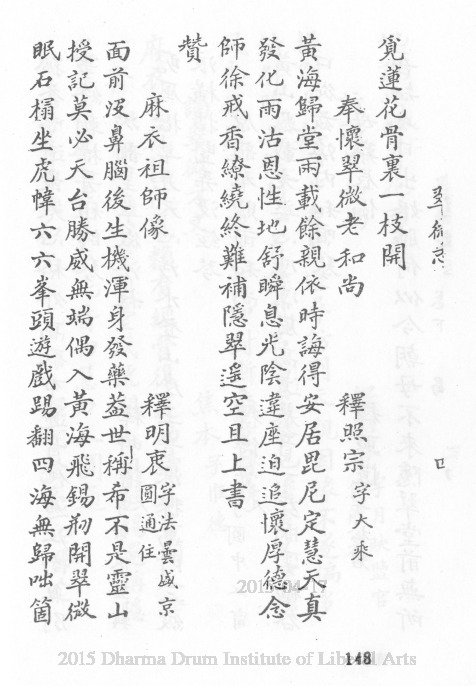 翠微志 四
覓蓮花骨裏一枝開
奉懷翠微老和尚 釋照宗 字大乘
黃海歸堂兩載餘親依時誨得安居毘尼定慧天真
發化雨沾恩性地舒瞬息光陰違座迫追懷厚德念
師徐戒香繚繞終難補隱翠遙空且上書
贊
麻衣祖師像 釋明衷 字法曇盛京
圓通住
面前沒鼻腦後生機渾身發藥蓋世稱希不是靈山
授記莫必天台勝威無端偶入黃海飛錫剏開翠微
眠石榻坐虎幃六六峯頭遊戲踢翻四海無歸咄箇
2015-04-17
148
2015 Dharma Drum Institute of Liberal Arts